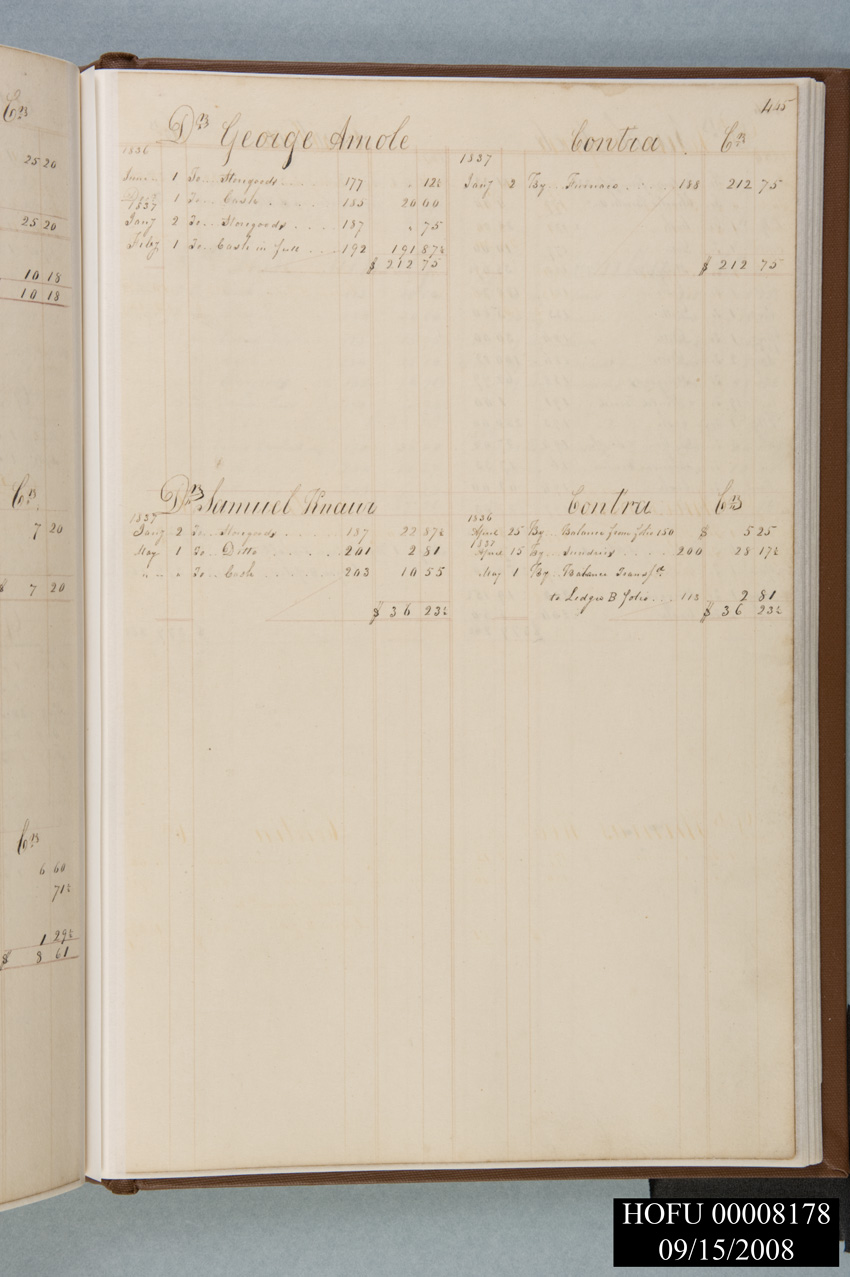 Crs
25 20
25 20
10 18
10 18
Crs
7 20
$ 7 20
Crs
6 60
71½
1 29½
$ 8 61
445
Drs George Amole Contra Crs
1836 1837
June 1 To Storegoods 177 " 12½ Jany 2 By Furnace 188 212 75
1 To Cash 185 20 00
1837
Jany 2 To Storegoods 187 " 75
Feby 1 To Cash in full 192 191 87½
$ 212 75 $ 212 75
Drs Samuel Knauer Contra Crs
1837 1836
Jany 2 To Storegoods 187 22 87½ April 25 By Balance from folio 150 $ 5 25
1837
May 1 To Ditto 201 2 81 April 15 By Sundries 200 28 17½
" " " To Cash 203 10 55 May 1 By Balance Transfd
to Ledger B folio 113 2 81
$ 36 23½ $ 36 23½
HOFU 00008178
09/15/2008